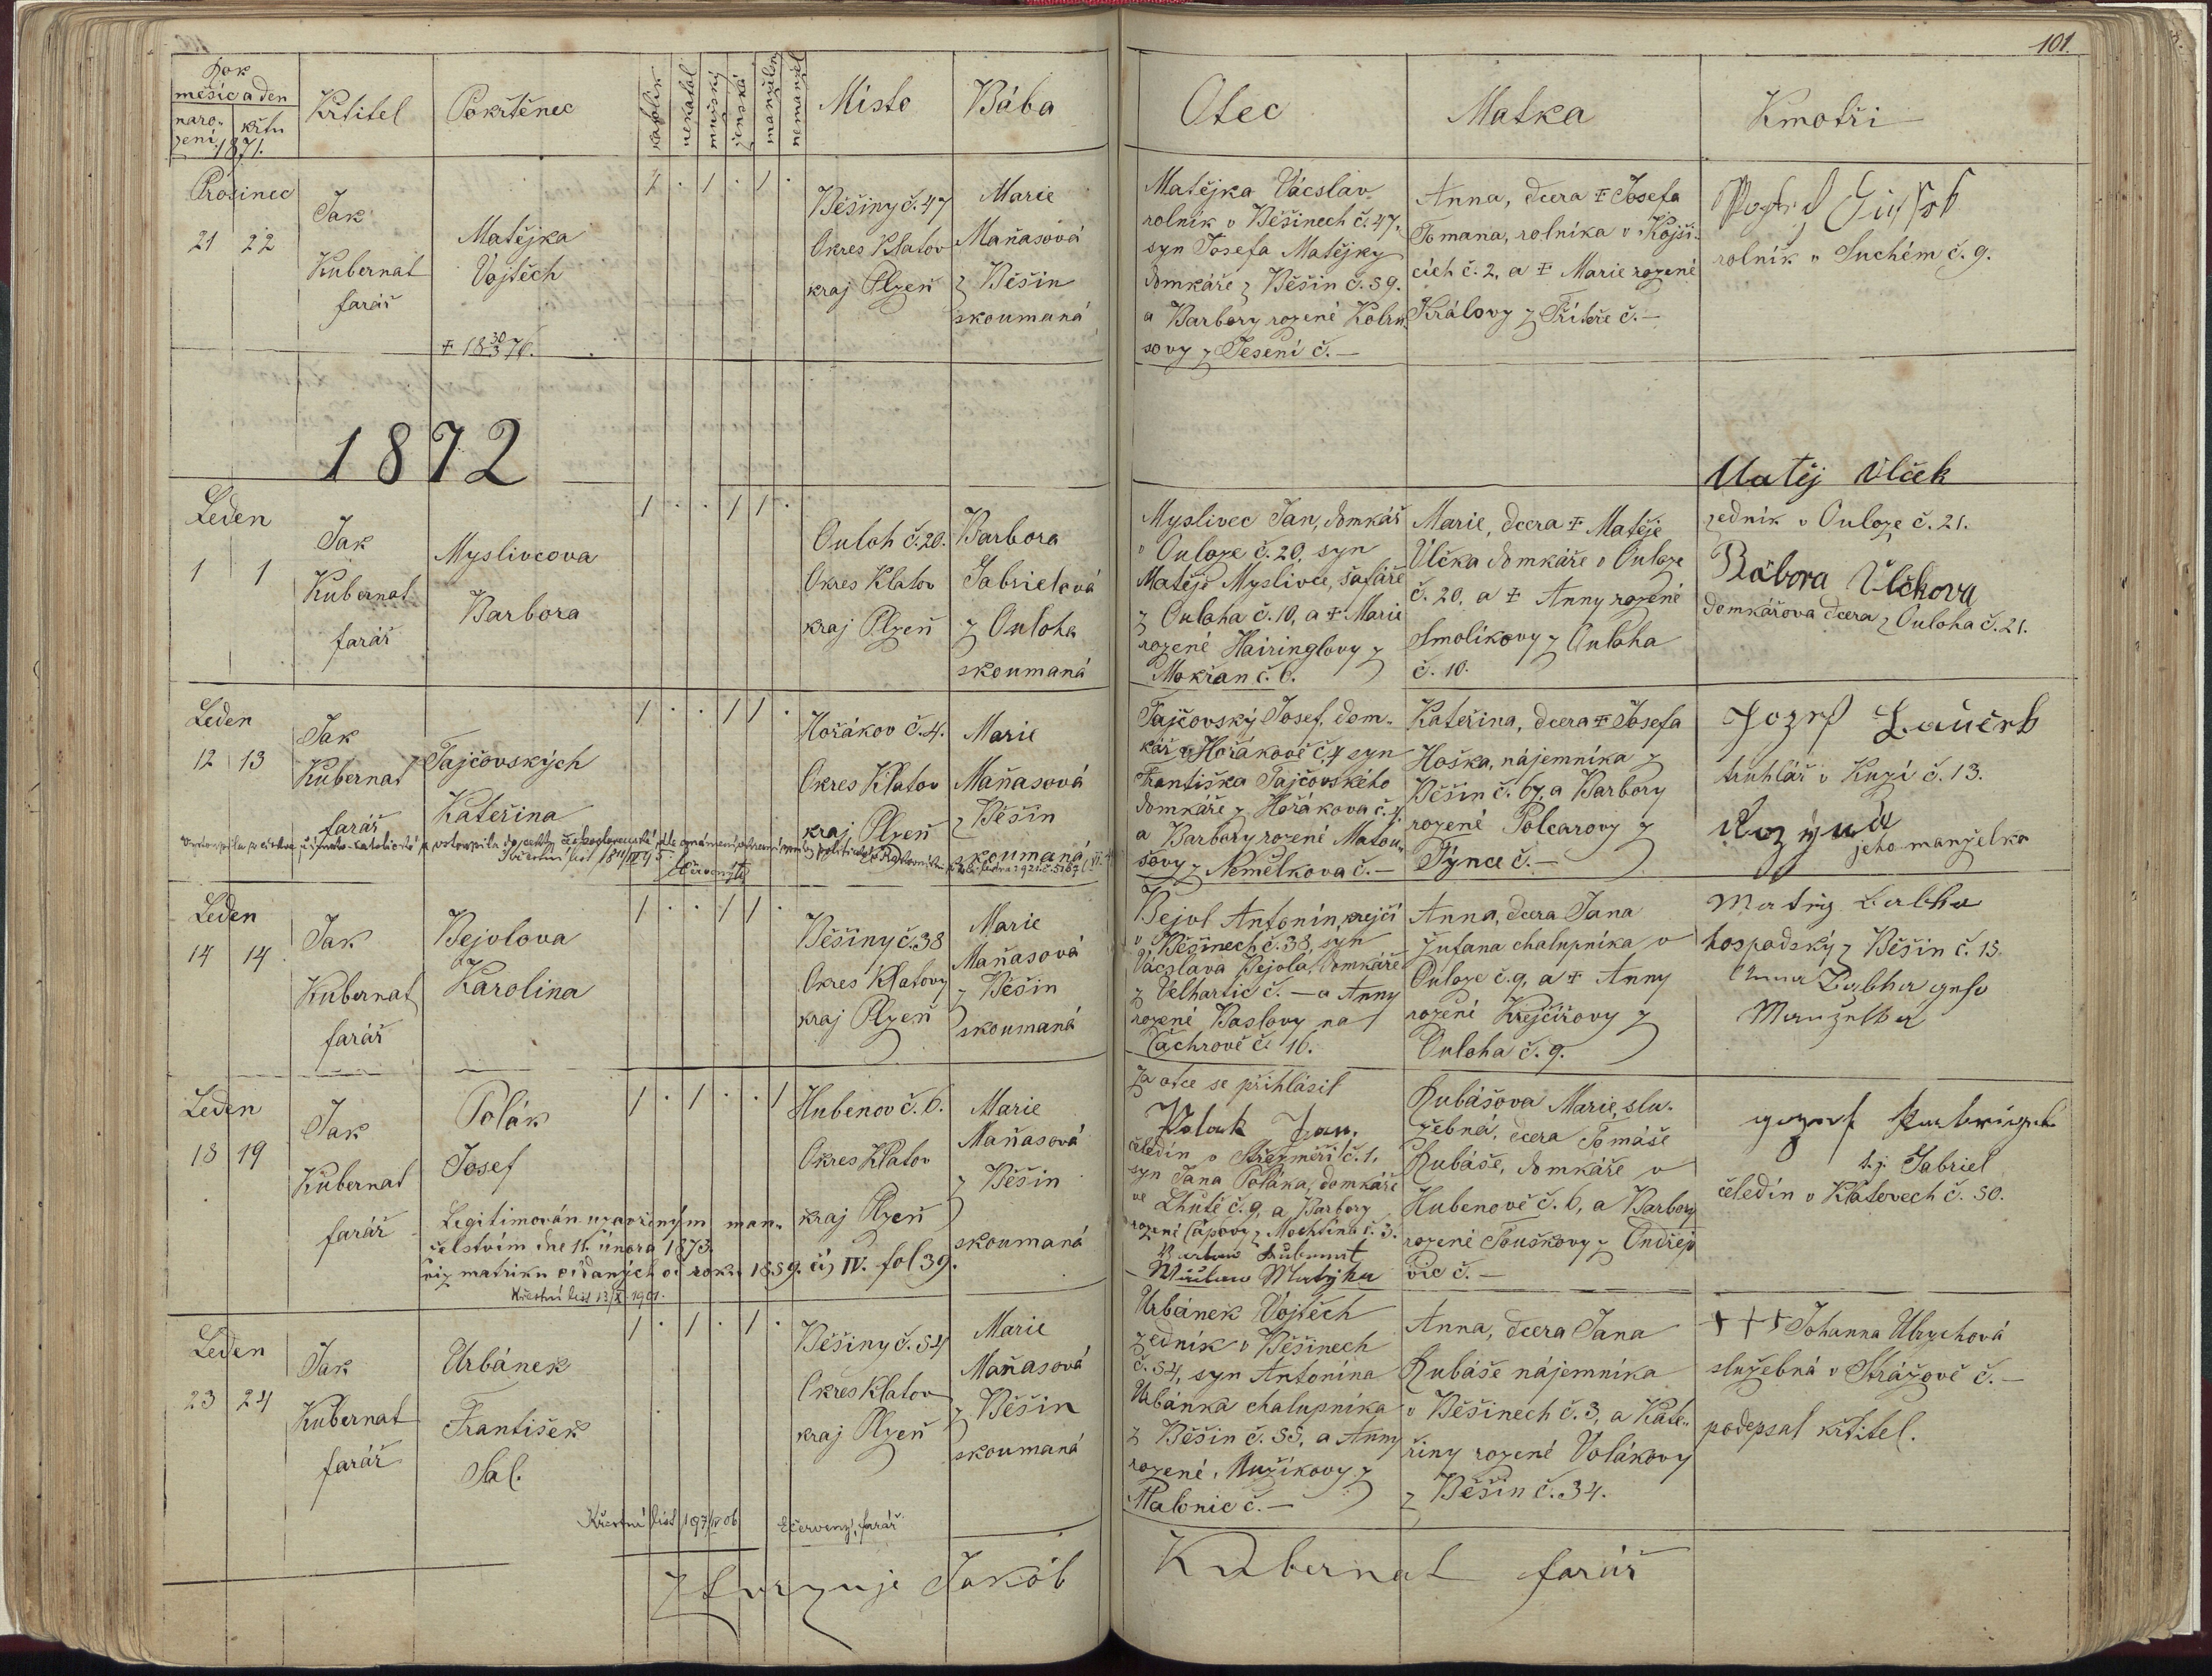 101.
Rok
měsíc a den
naro-
zení
křtu
1871.
Křtitel
Pokřtěnec
katolík
nekatol
mužský
ženská
manželský
nemanžel
Místo
Bába
Otec
Matka
Kmotři
Prosinec
21 22
Jak
Kubernat
farář
Matějka
Vojtěch
1 . 1 . 1 .
Běšiny č. 47
Okres Klatov
kraj Plzeň
Marie
Maňasová
z Běšin
skoumaná
Matějka Václav
rolník v Běšinech č. 47.
syn Josefa Matějky
domkáře z Běšin č. 59.
a Barbory rozené
sovy z Jesení č. —
Anna, dcera ✝ Josefa
Tomana, rolníka v Kojši-
cích č. 2, a ✝ Marie rozené
Královy z č. —
rolník v Suchém č. 9.
1872
Leden
1 1
Jak
Kubernat
farář
Myslivcova
Barbora
1 . . 1 1 .
Ouloh č. 20.
Okres Klatov
kraj Plzeň
Barbora
Jabrielová
z Ouloha
skoumaná
Myslivec Jan, domkář
v Ouloze č. 20, syn
Matěje Myslivce, šafáře
z Ouloha č. 10, a ✝ Marie
rozené Hairinglovy z
Mokřan č. 6.
Marie, dcera ✝ Matěje
Vlčka domkáře v Ouloze
č. 20, a ✝ Anny rozené
Smolíkovy z Ouloha
č. 10.
Matěj Vlček
zedník v Ouloze č. 21.
Bábora Vlčkova
domkářova dcera z Ouloha č. 21.
Leden
12 13
Jak
Kubernat
farář
Tajčovských
Kateřina
1 . . 1 1 .
Hořákov č. 4.
Okres Klatov
kraj Plzeň
Marie
Maňasová
z Běšin
skoumaná
Tajčovský Josef, dom-
kář v Hořákově č. 4 syn
Františka Tajčovského
domkáře z Hořákova č. 4
a Barbory rozené Matou-
šovy z Nemělkova č. —
Kateřina, dcera ✝ Josefa
Hoška, nájemníka z
Běšin č. 67, a Barbory
rozené Polcarovy z
Týnce č. —
truhlář v Kuzí č. 13.
jeho manželka
Leden
14 14
Jak
Kubernat
farář
Bejvlova
Karolina
1 . . 1 1 .
Běšiny č. 38
Okres Klatovy
kraj Plzeň
Marie
Maňasová
z Běšin
skoumaná
Bejvl Antonín, krejčí
v Běšinech č. 38, syn
Václava Bejvla, domkáře
z Velhartic č. — a Anny
rozené Baslovy na
Čachrově č. 16.
Anna, dcera Jana
Žufana chalupníka v
Ouloze č. 9, a ✝ Anny
rozené Krejčířovy z
Ouloha č. 9.
hospodský z Běšin č. 15
Leden
18 19
Jak
Kubernat
farář
Polák
Josef
Legitimován uzavřeným man-
želstvím dne 11. února 1873.
viz matriku oddaných od roku 1859. čís IV. fol 39.
1 . 1 . . 1
Hubenov č. 6.
Okres Klatov
kraj Plzeň
Marie
Maňasová
z Běšin
skoumaná
Za otce se přihlásil
Polak Jan,
čeledín v Střezměři č. 1.
syn Jana Poláka, domkáře
ve Lhutě č. 9, a Barbory
rozené Čápovy z Mochtína č. 3.
Rubášova Marie, slu-
žebná, dcera Tomáše
Rubáše, domkáře v
Hubenově č. 6, a Barbory
rozené Touškovy z Ondřejo
vic č. —
t. j. Jabriel
čeledín v Klatovech č. 50.
Leden
23 24
Jak
Kubernat
farář
Urbánek
František
Sal.
1 . 1 . 1 .
Běšiny č. 54
Okres Klatov
kraj Plzeň
Marie
Maňasová
z Běšin
skoumaná
Urbánek Vojtěch
zedník v Běšinech
č. 54, syn Antonína
Urbánka chalupníka
z Běšin č. 55, a Anny
rozené Mužíkovy z
č. —
Anna, dcera Jana
Rubáše nájemníka
v Běšinech č. 3, a Kate-
řiny rozené Volákovy
z Běšin č. 34.
+++ Johanna Ulrychová
služebná v Strážově č. —
podepsal křtitel.
Křestní list 197/IV 06 Červený, farář
Jakób Kubernat farář